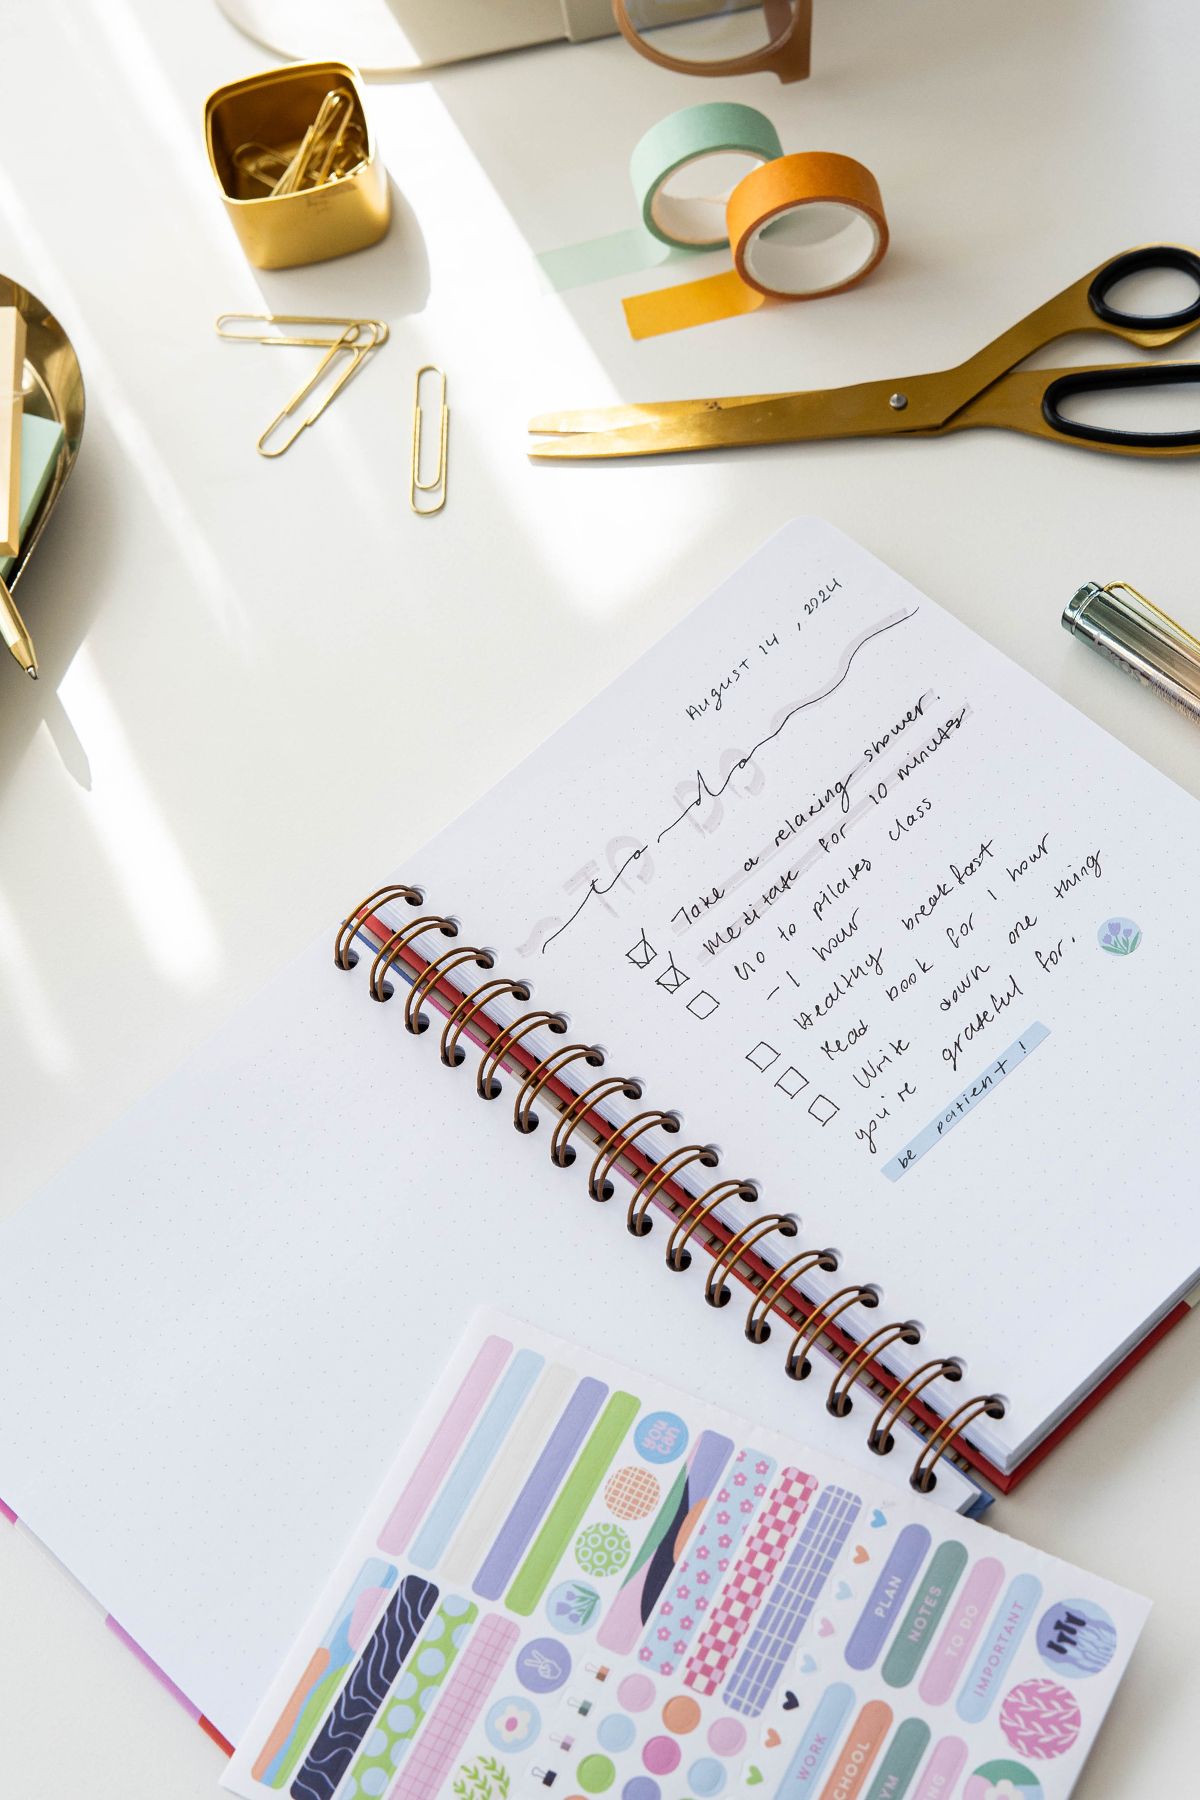 August 14, 2024
to do
TO DO
Take a relaxing shower.
Meditate for 10 minutes
Go to pilates class
- 1 hour
Healthy breakfast
Read book for 1 hour
Write down one thing
you're grateful for.
be patient!
you can
PLAN
NOTES
TO DO
IMPORTANT
WORK